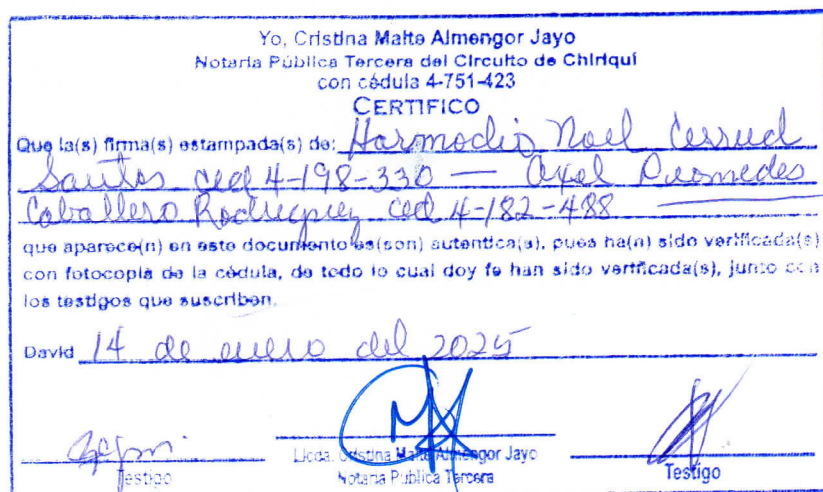 Yo, Cristina Maite Almengor Jayo
Notaria Pública Tercera del Circuito de Chiriquí
con cédula 4-751-423
CERTIFICO
Que la(s) firma(s) estampada(s) de: Harmodio Noel Cerrud
Santos ced 4-198-330 — Axel Diomedes
Caballero Rodriguez ced 4-182-488
que aparece(n) en este documento es(son) autentica(s), pues ha(n) sido verificada(s)
con fotocopia de la cédula, de todo lo cual doy fe han sido verificada(s), junto con
los testigos que suscriben.
David 14 de enero del 2025
Testigo
Licda. Cristina Maite Almengor Jayo
Notaria Pública Tercera
Testigo